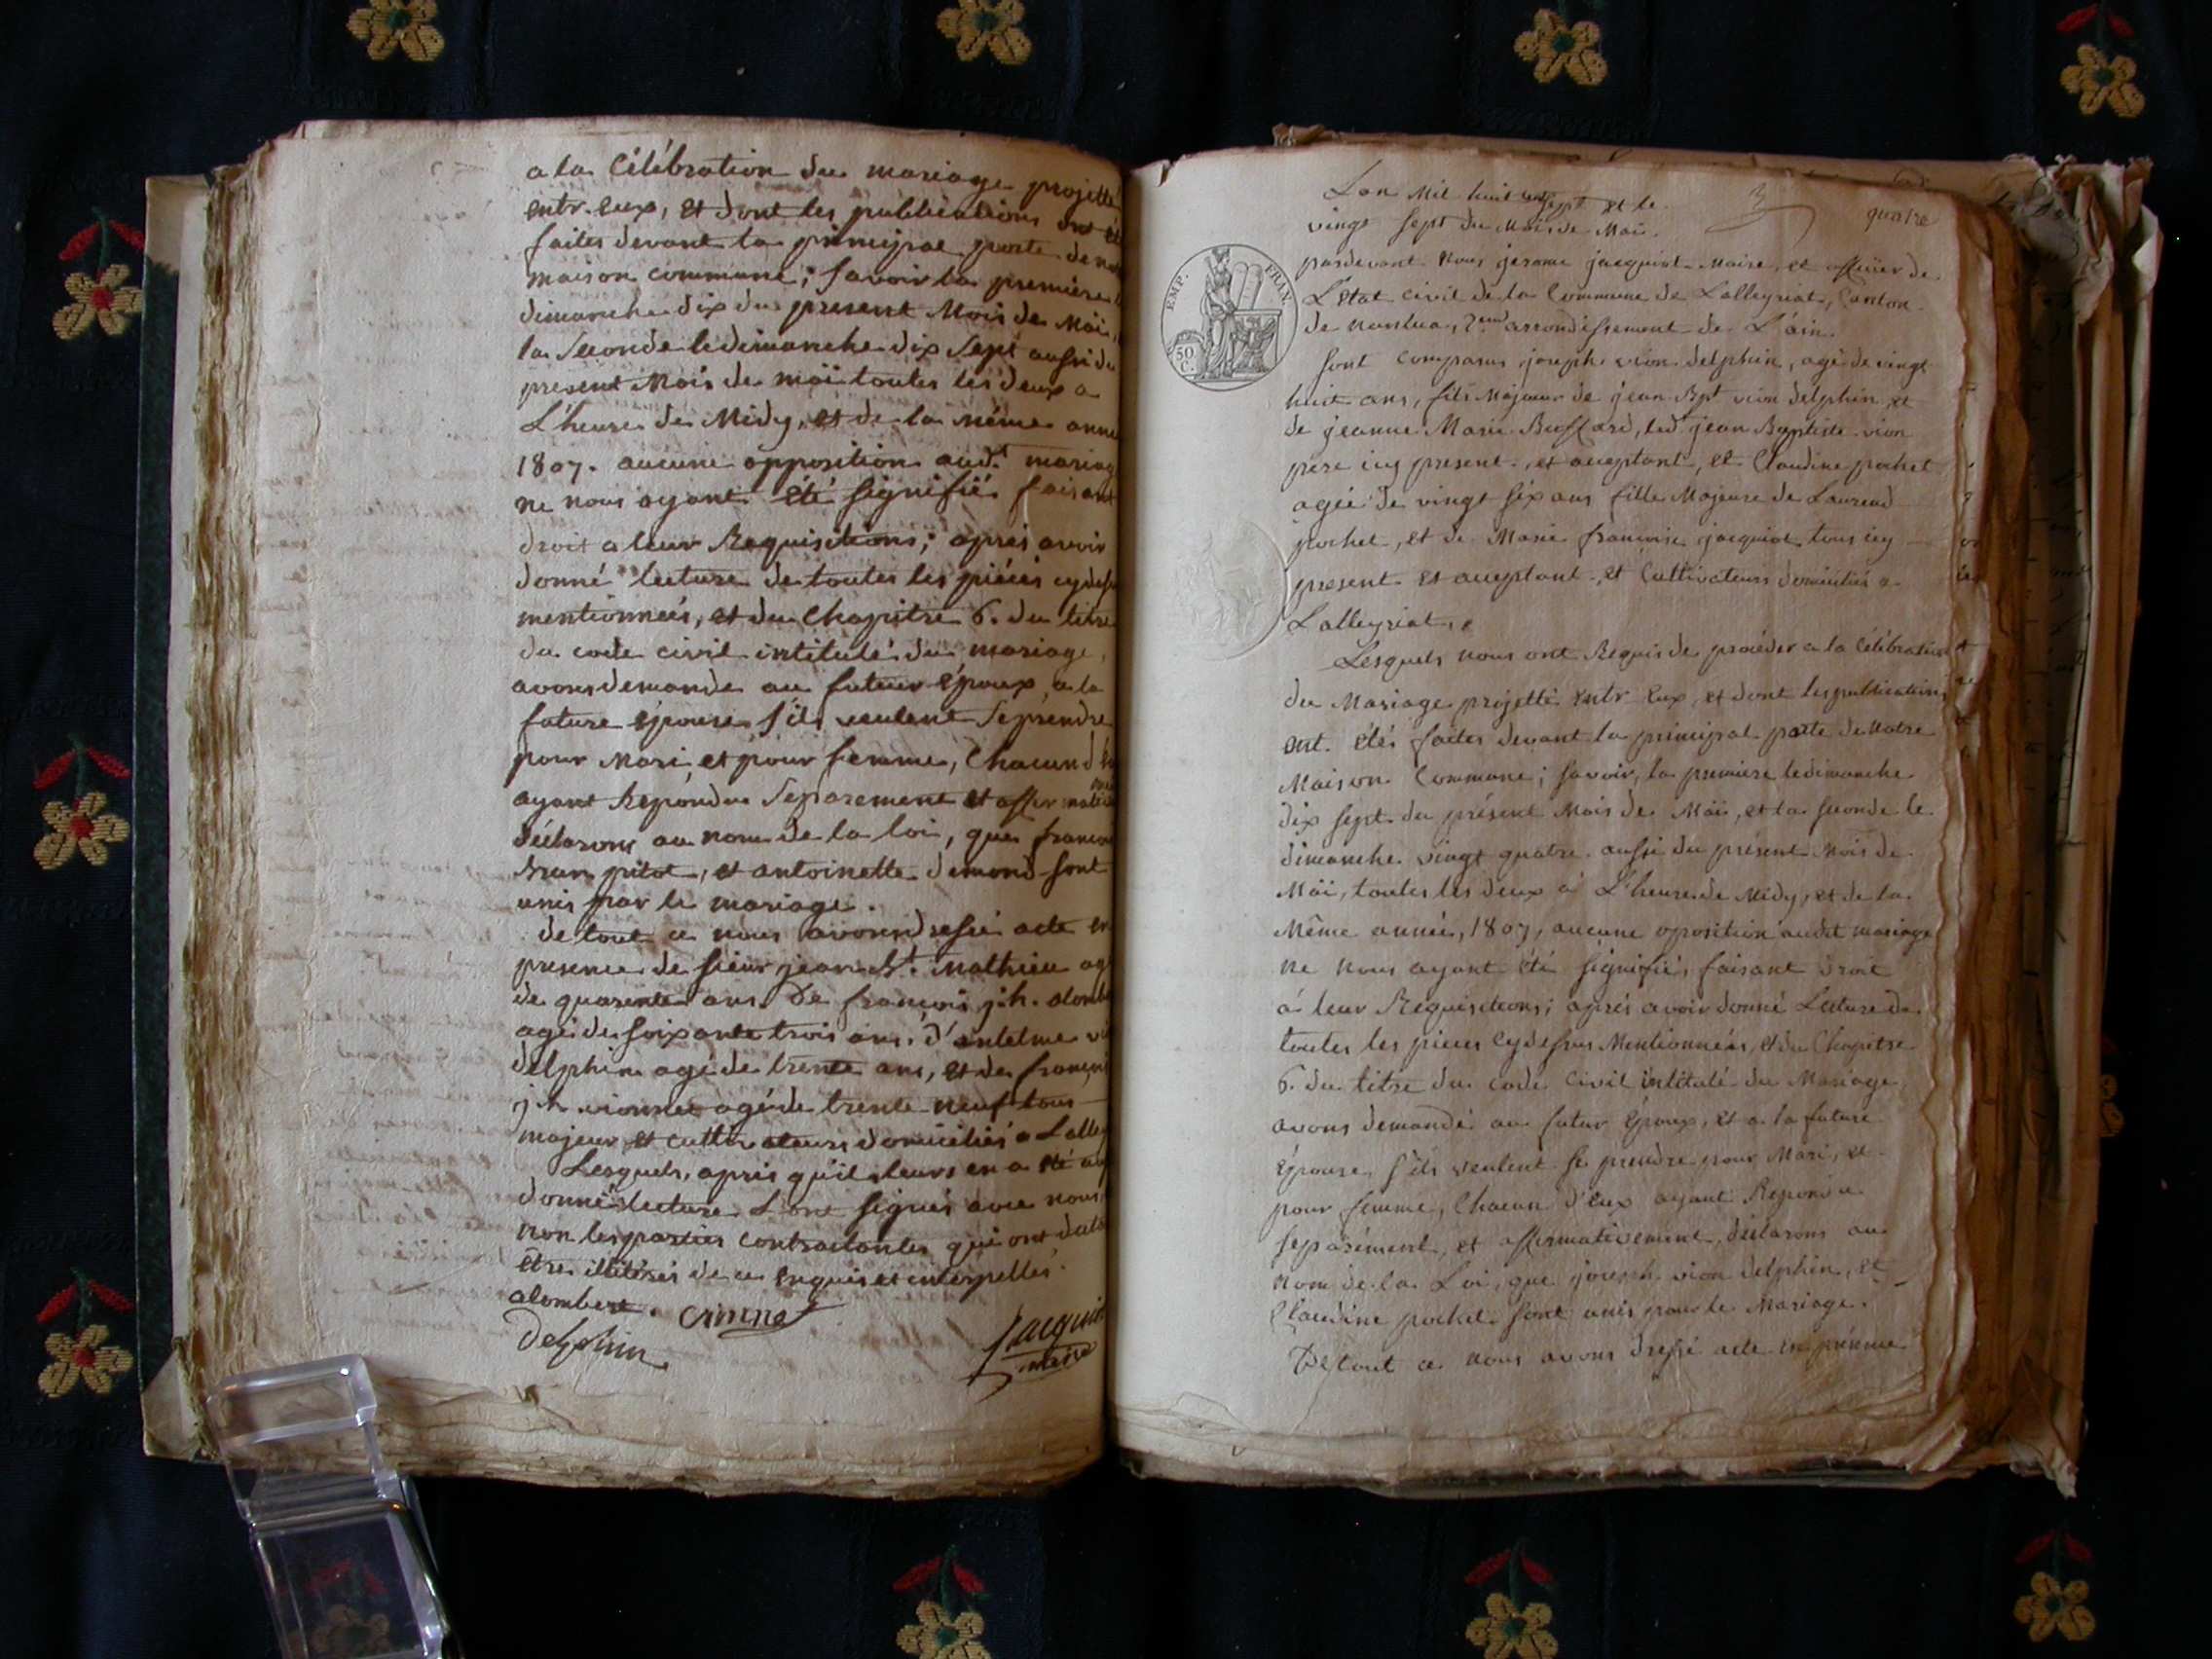 a la Célébration du mariage projetté
entr. eux, et dont les publications ont été
faites devant la principal porte de
maison commune; savoir la premiere
dimanche dix du present Mois de Mäi,
la seconde le dimanche dix sept aussi du
present Mois de mäi toutes les deux a
L'heure de Midy, et de la même anne
1807. aucune opposition aud.t mariag
ne nous ayant été signifié faisant
droit a leur Requisitions; aprés avoir
donné lecture de toutes les piéces
mentionneés, et du Chapitre 6. du titre
du code civil intitulé du mariage,
avons demande au futeur époux, a la
future épouse s'ils veulent se prendre
pour Mari, et pour femme, Chacun d
ayant Repondu Separement et
déclarons au nom de la loi, que
pitot, et antoinette demond sont
unis par le mariage.
de tout ce nous avons dressé acte en
presence de sieur jean Bt. Mathieu
de quarente ans de françois j.h.
agé de soixante trois ans. d'antelme
delphin agé de trente ans, et de
j.h. agé de trente neuf tous
majeur et cultivateurs domiciliés a
Lesquels, aprés qu'il leurs en a été
donné lecture L'ont signés avec nous
non les parties contractantes qui ont
être illitérés de ce enquis et interpellés.
alombert.
Delphin
Jacquiot
maire
quatre
Lan Mil huit cent sept et le
vingt sept du Mois de Mäi.
EMP. FRAN.
50 C.
pardevant Nous jerome jacquiot Maire, et officier de
L'Etat civil de la Commune de Lalleyriat, Canton
de Nantua, 2eme arrondissement de L'äin.
sont comparus joseph vion delphin, agé de vingt
huit ans, fils Majeur de jean Bpt vion delphin et
de jeanne Marie Bussard, led. jean Baptiste vion
pere icy present, et aceptant, et Claudine pochet
agée de vingt six ans fille Majeure de Laurend
pochet, et de Marie francoise jacquiot tous icy
present et aceptant, et Cultivateurs domiciliés a
Lalleyriat,
Lesquels nous ont Requis de procéder a la célébration
du Mariage projetté entr Eux, et dont les publications
ont étés faites devant la principal porte de Notre
Maison Commune; savoir, la premiere le dimanche
dix sept du présent Mois de Mäi, et la seconde le
dimanche vingt quatre aussi du présent Mois de
Mäi, toutes les deux à L'heure de Midy, et de la
Même année, 1807, aucune oposition audit mariage
ne nous ayant été signifiés faisant droit
à leur Requisitions; aprés avoir donné Lecture de
toutes les pieces cydessus Mentionneés, et du Chapitre
6. du titre du code Civil intitulé du Mariage,
avons demandé au futur époux, et a la future
épouse s'ils veulent se prendre pour Mari, et
pour femme, Chacun d'eux ayant Repondu
separément, et affirmativement, déclarons au
nom de la Loi, que joseph vion delphin, et
Claudine pochet sont unis par le Mariage.
De tout ce nous avons dressé acte en présence